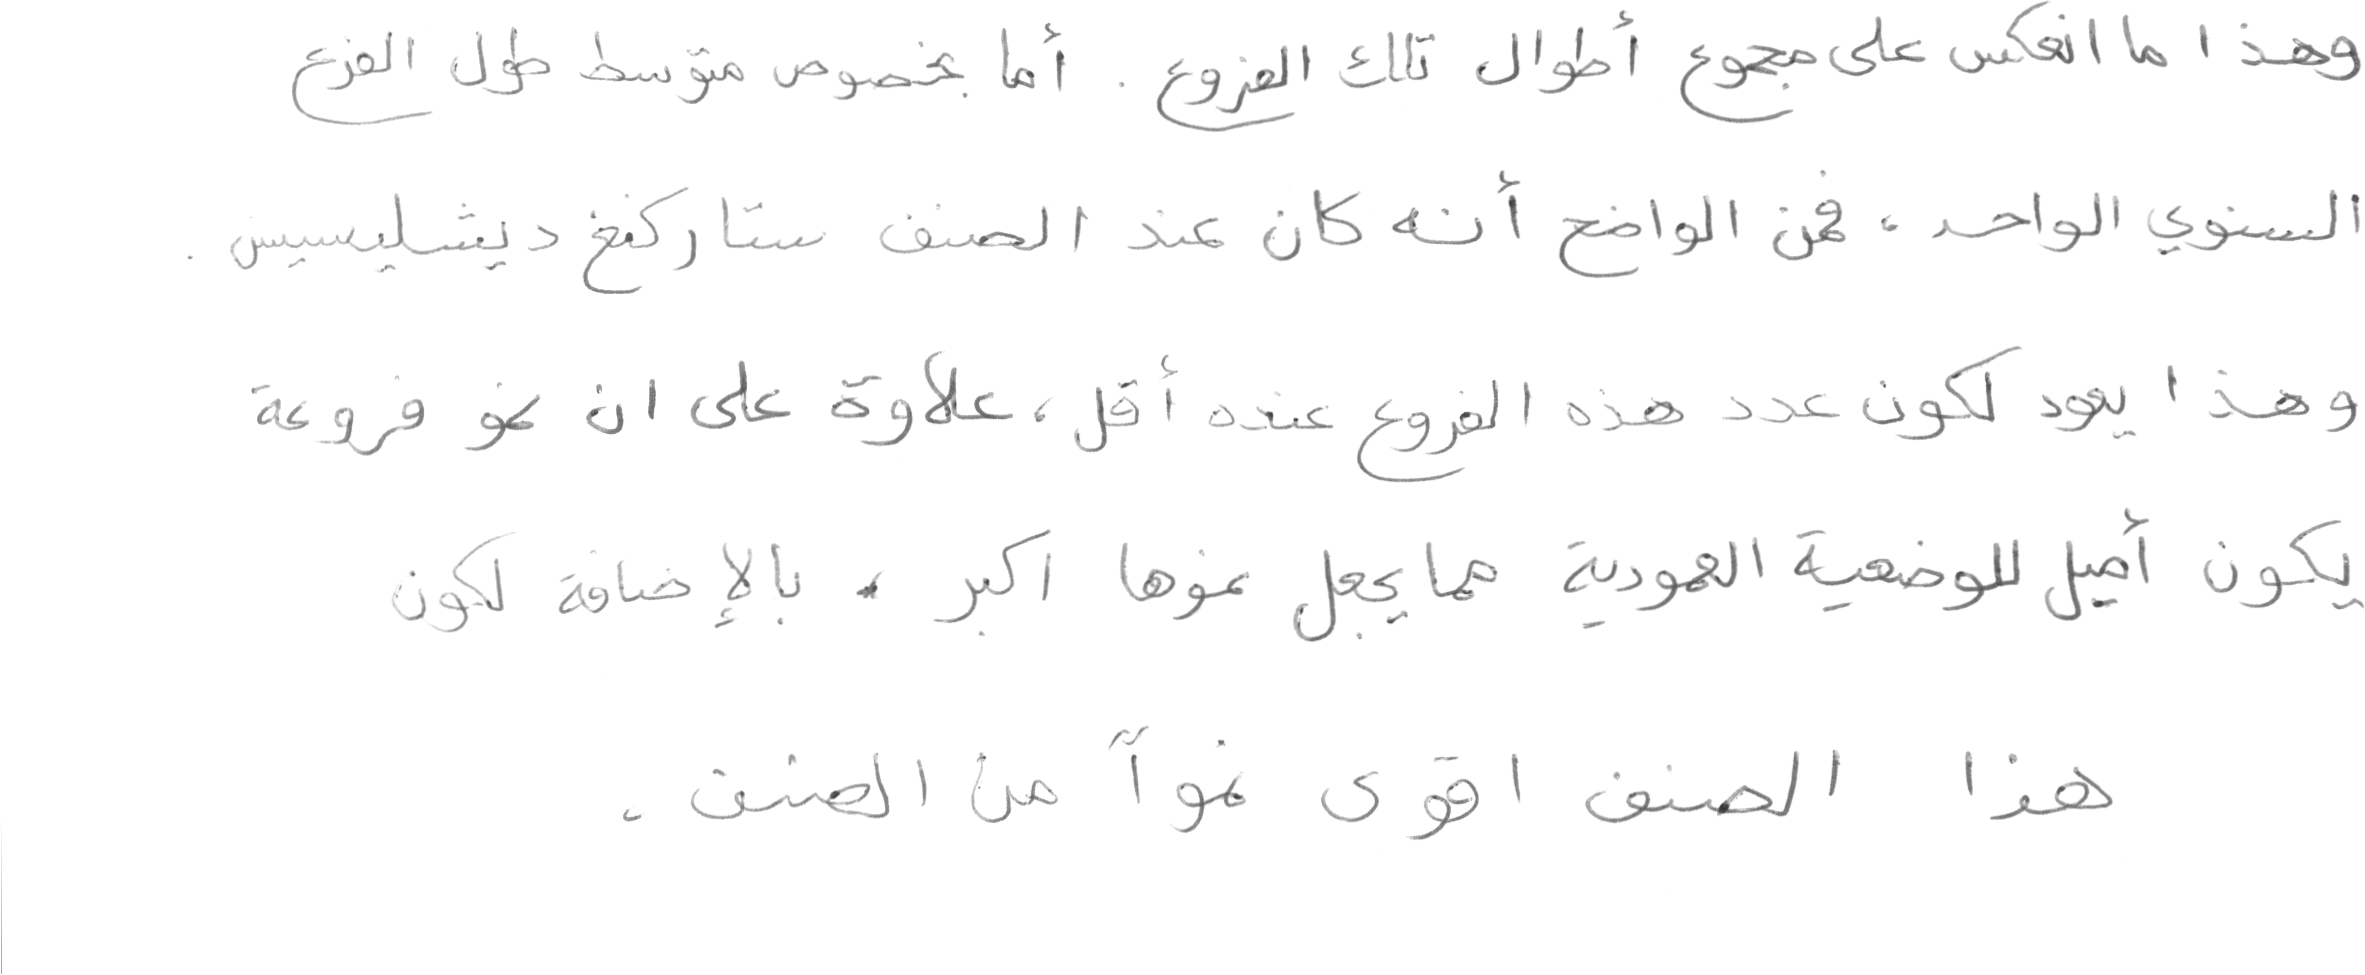 وهذا ما انعكس على مجموع أطوال تلك الفروع . أما بخصوص متوسط طول الفرع
السنوي الواحد ، فمن الواضح أنه كان عند الصنف ستاركنغ ديشليسيس .
وهذا يعود لكون عدد هذه الفروع عنده أقل ، علاوة على ان نمو فروعة
يكون أميل للوضعية العمودية مما يجعل نموها اكبر ، بالإضافة لكون
هذا الصنف اقوى نمواً من الصنف .